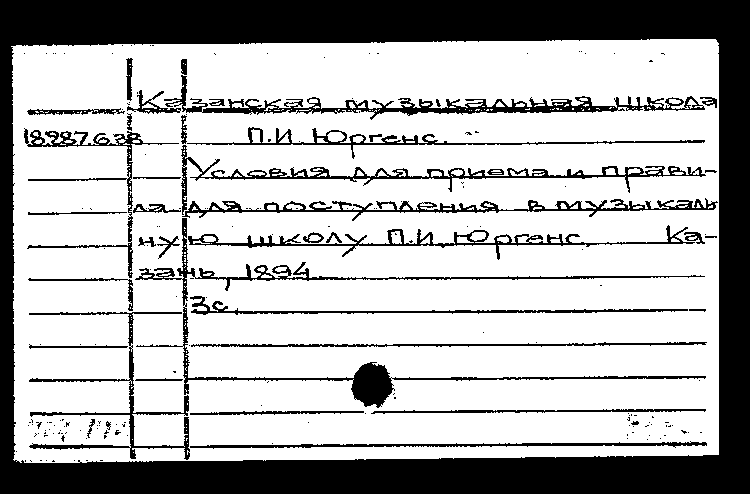 Казанская музыкальная школа
18287.6.38 П.И. Юргенс.
Условия для приема и прави-
ла для поступления в музыкаль
ную школу П.И. Юргенс. Ка-
зань, 1894.
3с.